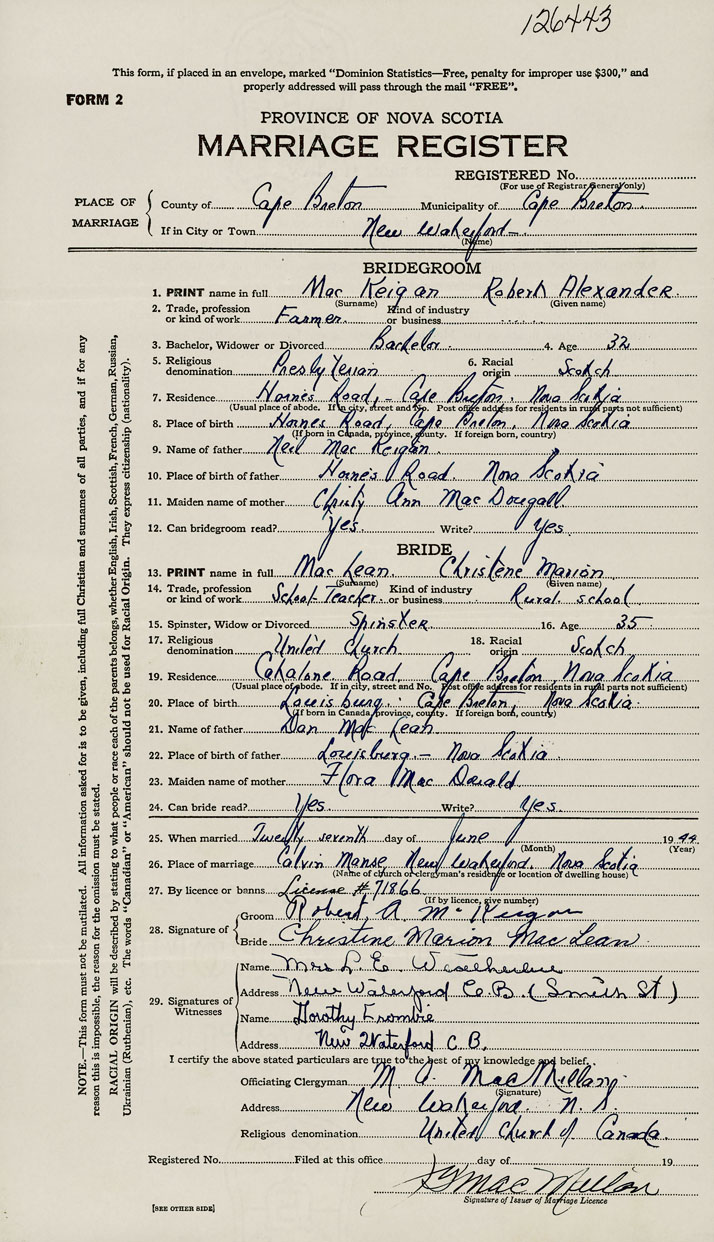 126443
This form, if placed in an envelope, marked "Dominion Statistics—Free, penalty for improper use $300," and
properly addressed will pass through the mail "FREE".
FORM 2
PROVINCE OF NOVA SCOTIA
MARRIAGE REGISTER
REGISTERED No.
(For use of Registrar General only)
PLACE OF MARRIAGE
County of Cape Breton Municipality of Cape Breton
If in City or Town New Waterford
(Name)
BRIDEGROOM
1. PRINT name in full Mac Keigan Robert Alexander
(Surname) (Given name)
2. Trade, profession or kind of work Farmer Kind of industry or business
3. Bachelor, Widower or Divorced Bachelor 4. Age 32
5. Religious denomination Presbyterian 6. Racial origin Scotch
7. Residence Hornes Road, - Cape Breton, Nova Scotia
(Usual place of abode. If in city, street and No. Post office address for residents in rural parts not sufficient)
8. Place of birth Hornes Road, Cape Breton, Nova Scotia
(If born in Canada, province, county. If foreign born, country)
9. Name of father Neil Mac Keigan
10. Place of birth of father Hornes Road. Nova Scotia
11. Maiden name of mother Christy Ann Mac Dougall
12. Can bridegroom read? Yes. Write? Yes
BRIDE
13. PRINT name in full Mac Lean Christene Marion
(Surname) (Given name)
14. Trade, profession or kind of work School-Teacher Kind of industry or business Rural school
15. Spinster, Widow or Divorced Spinster 16. Age 35
17. Religious denomination United Church 18. Racial origin Scotch
19. Residence Road, Cape Breton, Nova Scotia
(Usual place of abode. If in city, street and No. Post office address for residents in rural parts not sufficient)
20. Place of birth Louisburg. Cape Breton, Nova Scotia
(If born in Canada, province, county. If foreign born, country)
21. Name of father Dan Mac Lean
22. Place of birth of father Louisburg - Nova Scotia
23. Maiden name of mother Flora Mac Donald
24. Can bride read? Yes Write? Yes.
25. When married Twenty seventh day of June 1944
(Month) (Year)
26. Place of marriage Calvin Manse, New Waterford. Nova Scotia
(Name of church or clergyman's residence or location of dwelling house)
27. By licence or banns License #71866
(If by licence, give number)
28. Signature of
Groom Robert A McKeigan
Bride Christine Marion MacLean
29. Signatures of Witnesses
Name Mrs L. E.
Address New Waterford C.B (Smith St)
Name Dorothy
Address New Waterford C.B.
I certify the above stated particulars are true to the best of my knowledge and belief.
Officiating Clergyman M A. MacMillan
(Signature)
Address New Waterford. N.S.
Religious denomination United Church of Canada.
Registered No. Filed at this office day of 19
MacMillan
Signature of Issuer of Marriage Licence
[SEE OTHER SIDE]
NOTE.—This form must not be mutilated. All information asked for is to be given, including full Christian and surnames of all parties, and if for any
reason this is impossible, the reason for the omission must be stated.
RACIAL ORIGIN will be described by stating to what people or race each of the parents belongs, whether English, Irish, Scottish, French, German, Russian,
Ukrainian (Ruthenian), etc. The words "Canadian" or "American" should not be used for Racial Origin. They express citizenship (nationality).